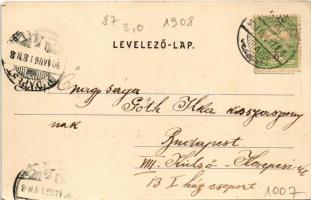 87
3,0
1908
LEVELEZŐ-LAP.
Őnagysága
Tóth Ilka kisasszony
nak
Budapest
VIII. Külső-Kerepesi-út
13 I ház csoport
1007